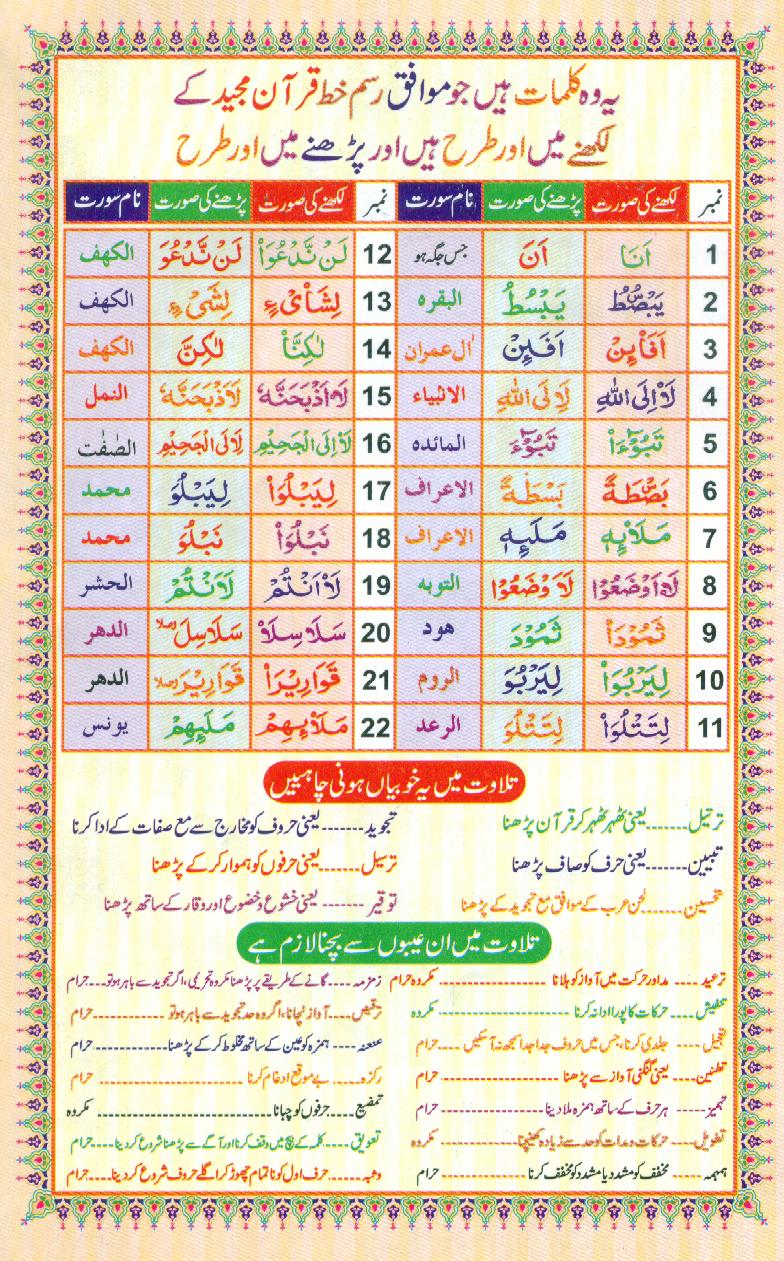 یہ وہ کلمات ہیں جو موافق رسم خط قرآن مجید کے
لکھنے میں اور طرح ہیں اور پڑھنے میں اور طرح
نمبر لکھنے کی صورت پڑھنے کی صورت نام سورت نمبر لکھنے کی صورت پڑھنے کی صورت نام سورت
1 اَنَا اَنَ جس جگہ ہو 12 لَنْ نَّدْعُوَا۟ لَنْ نَّدْعُوَ الکهف
2 یَبْصُۜطُ یَبْسُطُ البقره 13 لِشَا۟یْءٍ لِشَیْءٍ الکهف
3 اَفَا۟ىِٕنْ اَفَىِٕنْ اٰل عمران 14 لٰكِنَّا۟ لٰكِنَّ الکهف
4 لَا۟اِلَى اللّٰهِ لَاِلَى اللّٰهِ الانبیاء 15 لَا۟اَذْبَحَنَّهٗ لَاَذْبَحَنَّهٗ النمل
5 تَبُوْٓءَا۟ تَبُوْٓءَ المائده 16 لَا۟اِلَى الْجَحِیْمِ لَاِلَى الْجَحِیْمِ الصّٰفّٰت
6 بَصْۜطَةً بَسْطَةً الاعراف 17 لِیَبْلُوَا۟ لِیَبْلُوَ محمد
7 مَلَا۟ىِٕهٖ مَلَىِٕهٖ الاعراف 18 نَبْلُوَا۟ نَبْلُوَ محمد
8 لَا۟اَوْضَعُوْا لَاَوْضَعُوْا التوبه 19 لَا۟اَنْتُمْ لَاَنْتُمْ الحشر
9 ثَمُوْدَا۟ ثَمُوْدَ هود 20 سَلَاسِلَا۟ سَلَاسِلَ وصلا الدهر
10 لِیَرْبُوَا۟ لِیَرْبُوَ الروم 21 قَوَارِیْرَا۟ قَوَارِیْرَ وصلا الدهر
11 لِتَتْلُوَا۟ لِتَتْلُوَ الرعد 22 مَلَا۟ىِٕهِمْ مَلَىِٕهِمْ یونس
تلاوت میں یہ خوبیاں ہونی چاہییں
ترتیل.......یعنی ٹھہر ٹھہر کر قرآن پڑھنا تجوید.......یعنی حروف کو مخارج سے مع صفات کے ادا کرنا
تبیین.......یعنی حرف کو صاف پڑھنا ترسیل.......یعنی حرفوں کو ہموار کر کے پڑھنا
تحسین.......لحن عرب کے موافق مع تجوید کے پڑھنا توقیر.......یعنی خشوع و خضوع اور وقار کے ساتھ پڑھنا
تلاوت میں ان عیبوں سے بچنا لازم ہے
ترعید.... مد اور حرکت میں آواز کو ہلانا ........ مکروہ حرام زمزمہ....گانے کے طریقے پر پڑھنا مکروہ تحریمی، اگر تجوید سے باہر ہو تو...حرام
تنفیش.... حرکات کا پورا ادا نہ کرنا ........ مکروہ ترقیص....آواز نچانا، اگر وہ حد تجوید سے باہر ہو تو ........ حرام
تعجیل.... جلدی کرنا، جس میں حروف جدا جدا سمجھ نہ آسکیں .... حرام عنعنہ.... ہمزہ کو عین کے ساتھ مخلوط کر کے پڑھنا ........ حرام
تطنین.... یعنی گنگنی آواز سے پڑھنا ........ حرام رکزہ.... بے موقع ادغام کرنا ........ حرام
تہمیز.... ہر حرف کے ساتھ ہمزہ ملا دینا ........ حرام تمضیع.... حرفوں کو چبانا ........ مکروہ
تطویل.... حرکات و مدات کو حد سے زیادہ کھینچنا ........ مکروہ تعویق....کلمہ کے بیچ میں وقف کرنا اور آگے سے پڑھنا شروع کر دینا....حرام
ہمہمہ.... مخفف کو مشدد یا مشدد کو مخفف کرنا ........ حرام وثبہ.... حرف اول کو ناتمام چھوڑ کر اگلے حروف شروع کر دینا....حرام